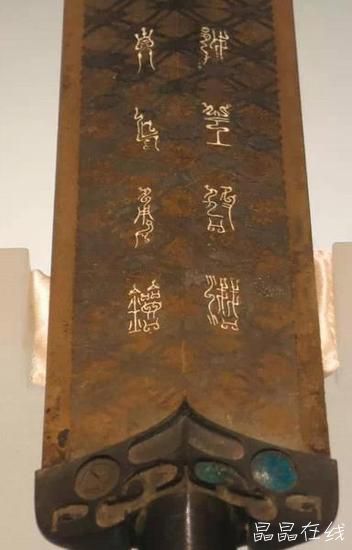 越王鳩淺
自乍用鐱
晶晶在线